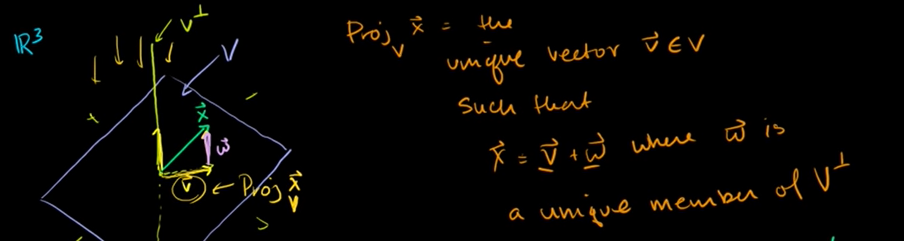 ℝ³
V⊥
V
x⃗
w⃗
v⃗ ← Proj_V x⃗
Proj_V x⃗ = the
unique vector v⃗ ∈ V
such that
x⃗ = v⃗ + w⃗ where w⃗ is
a unique member of V⊥